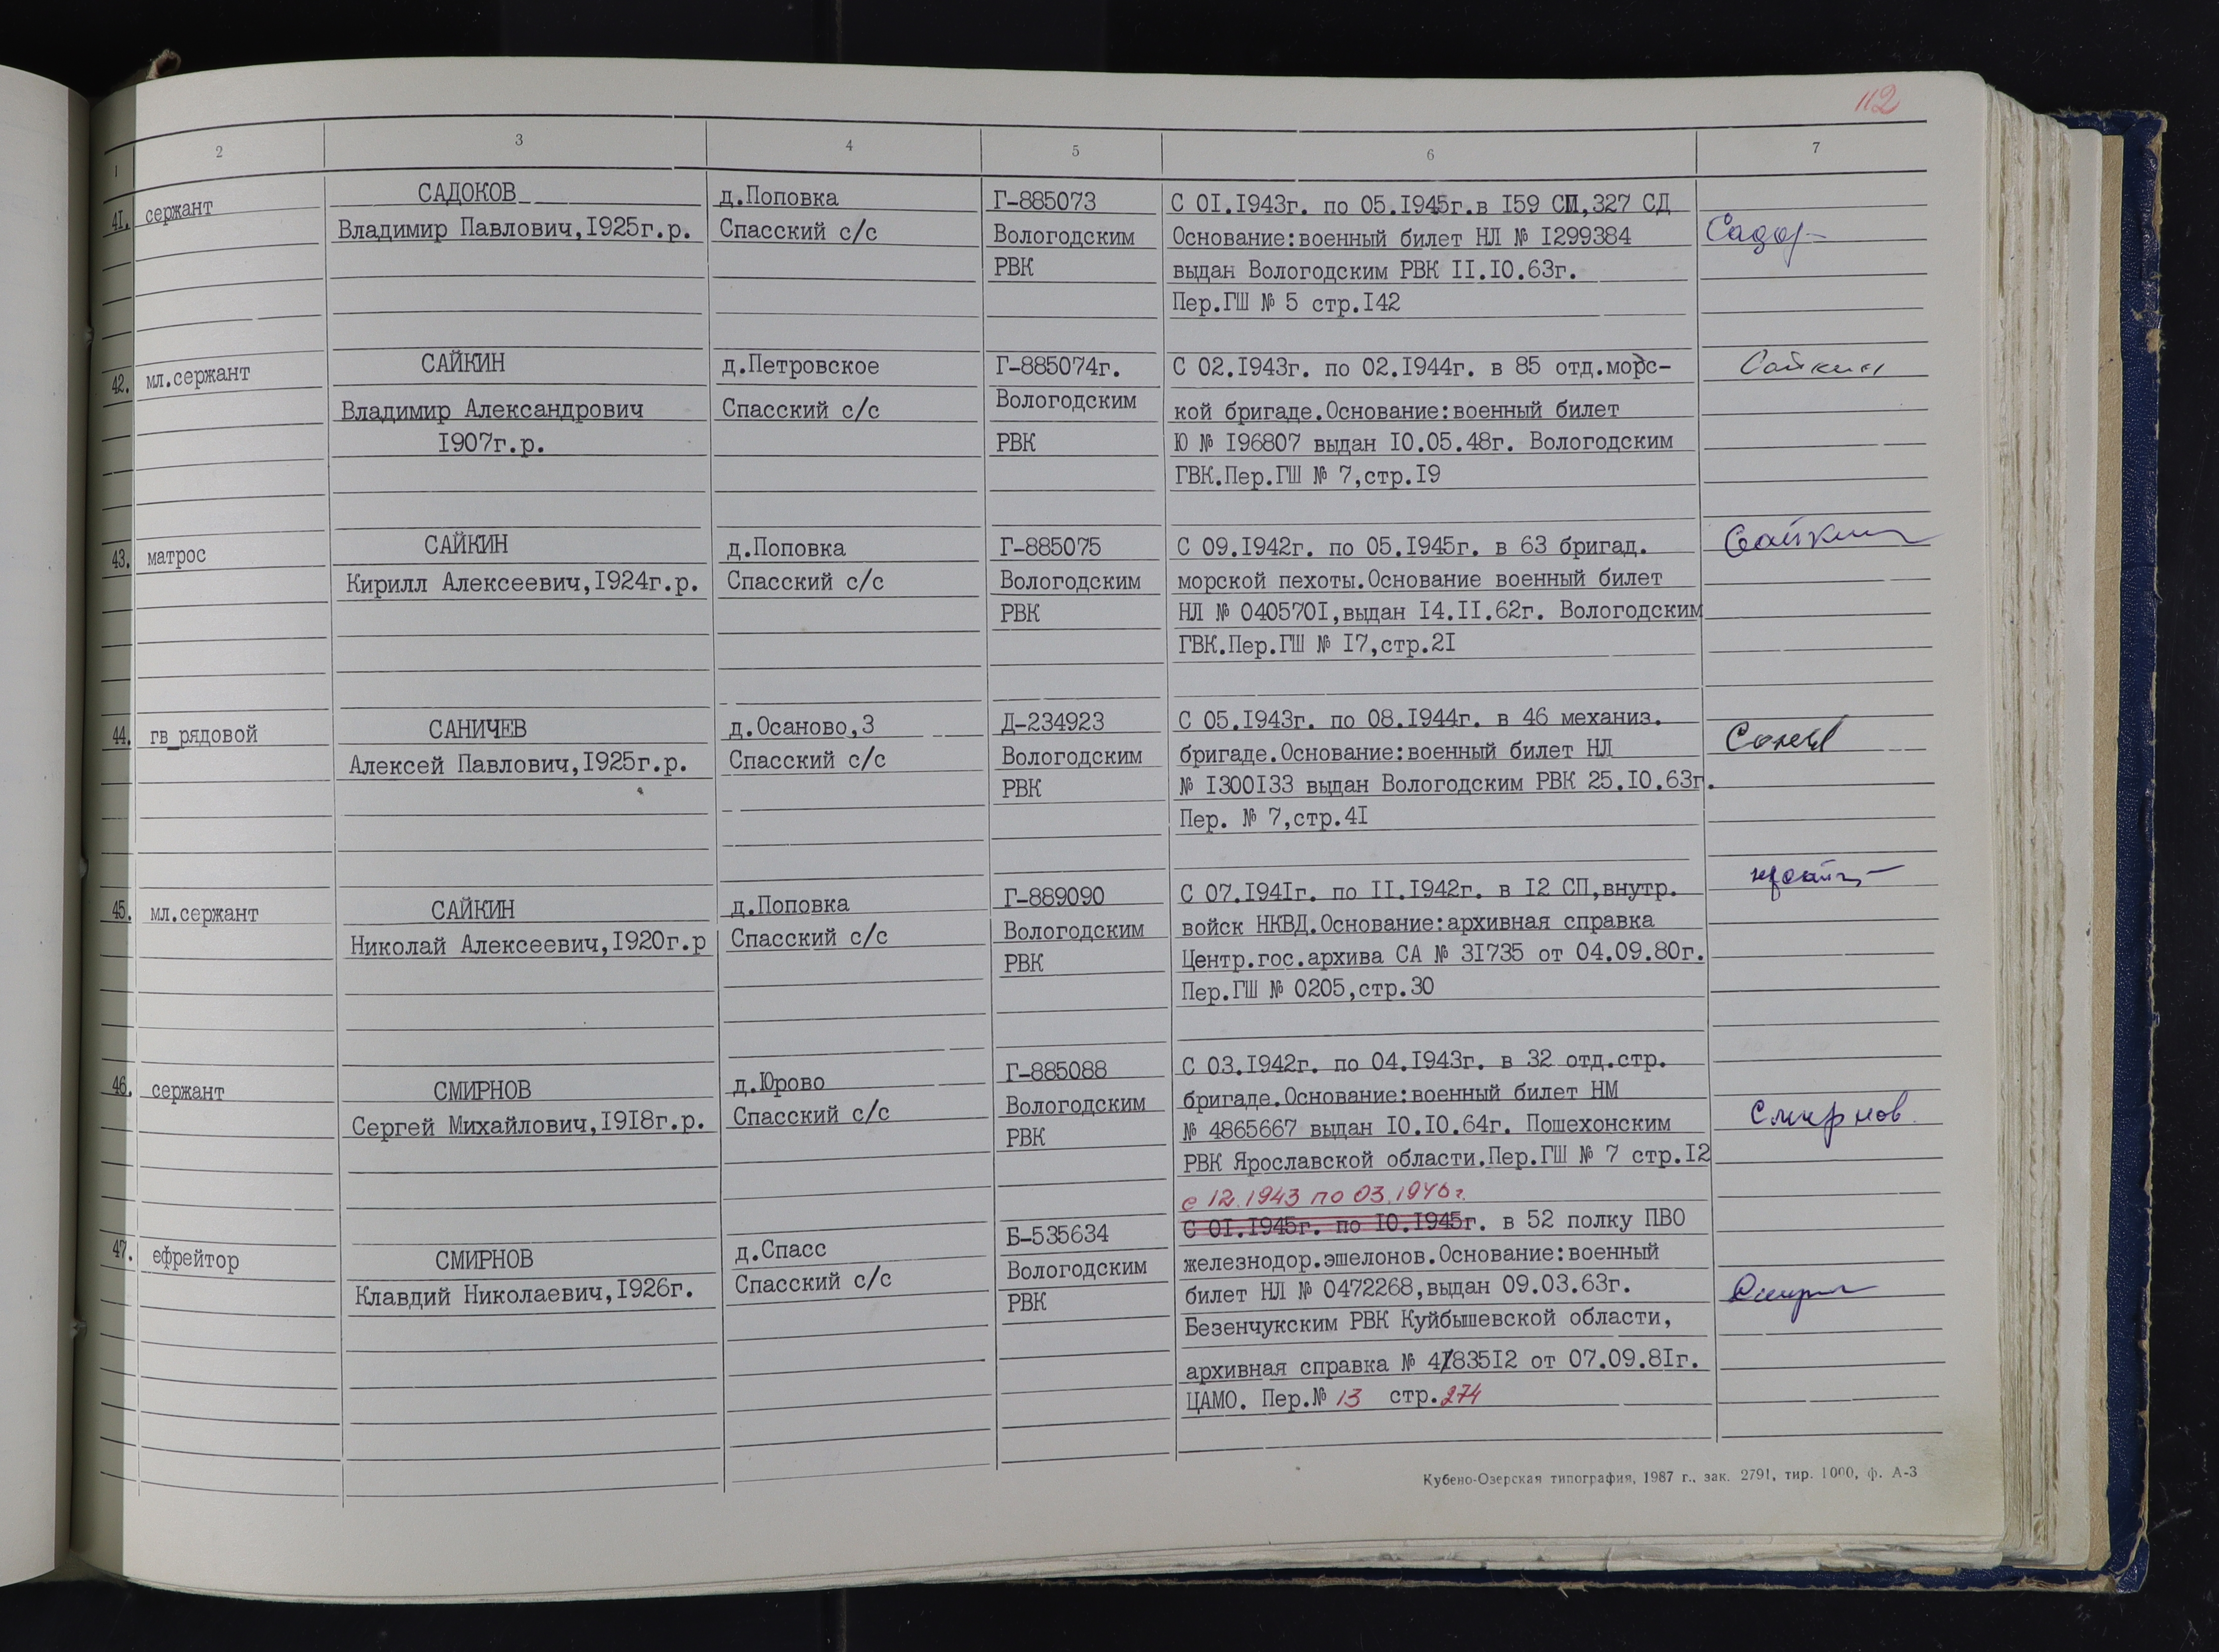 112
1 2 3 4 5 6 7
41. сержант САДОКОВ д.Поповка Г-885073 С 01.1943г. по 05.1945г.в 159 СП,327 СД
Владимир Павлович,1925г.р. Спасский с/с Вологодским Основание:военный билет НЛ № 1299384
РВК выдан Вологодским РВК 11.10.63г.
Пер.ГШ № 5 стр.142
42. мл.сержант САЙКИН д.Петровское Г-885074г. С 02.1943г. по 02.1944г. в 85 отд.морс- Сайкин
Владимир Александрович Спасский с/с Вологодским кой бригаде.Основание:военный билет
1907г.р. РВК Ю № 196807 выдан 10.05.48г. Вологодским
ГВК.Пер.ГШ № 7,стр.19
43. матрос САЙКИН д.Поповка Г-885075 С 09.1942г. по 05.1945г. в 63 бригад. Сайкин
Кирилл Алексеевич,1924г.р. Спасский с/с Вологодским морской пехоты.Основание военный билет
РВК НЛ № 0405701,выдан 14.11.62г. Вологодским
ГВК.Пер.ГШ № 17,стр.21
44. гв_рядовой САНИЧЕВ д.Осаново,3 Д-234923 С 05.1943г. по 08.1944г. в 46 механиз.
Алексей Павлович,1925г.р. Спасский с/с Вологодским бригаде.Основание:военный билет НЛ
РВК № 1300133 выдан Вологодским РВК 25.10.63г.
Пер. № 7,стр.41
45. мл.сержант САЙКИН д.Поповка Г-889090 С 07.1941г. по 11.1942г. в 12 СП,внутр.
Николай Алексеевич,1920г.р Спасский с/с Вологодским войск НКВД.Основание:архивная справка
РВК Центр.гос.архива СА № 31735 от 04.09.80г.
Пер.ГШ № 0205,стр.30
46. сержант СМИРНОВ д.Юрово Г-885088 С 03.1942г. по 04.1943г. в 32 отд.стр.
Сергей Михайлович,1918г.р. Спасский с/с Вологодским бригаде.Основание:военный билет НМ
РВК № 4865667 выдан 10.10.64г. Пошехонским Смирнов
РВК Ярославской области.Пер.ГШ № 7 стр.12
с 12.1943 по 03.1946г.
47. ефрейтор СМИРНОВ д.Спасс Б-535634 С 01.1945г. по 10.1945г. в 52 полку ПВО
Клавдий Николаевич,1926г. Спасский с/с Вологодским железнодор.эшелонов.Основание:военный
РВК билет НЛ № 0472268,выдан 09.03.63г.
Безенчукским РВК Куйбышевской области,
архивная справка № 4/83512 от 07.09.81г.
ЦАМО. Пер.№ 13 стр.274
Кубено-Озерская типография, 1987 г., зак. 2791, тир. 1000, ф. А-3